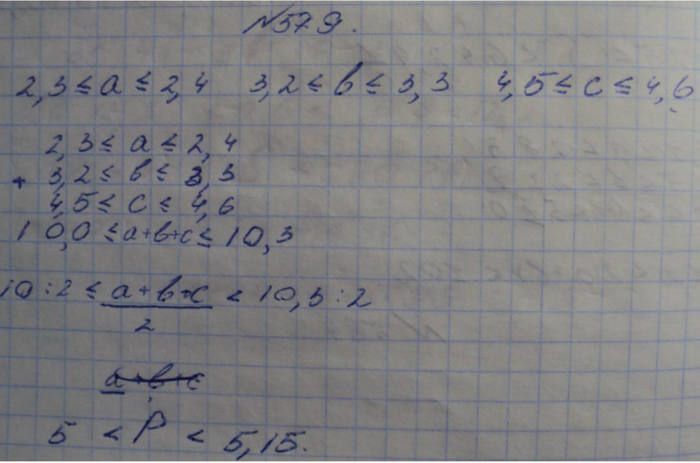 №579.
2,3 ≤ a ≤ 2,4 3,2 ≤ в ≤ 3,3 4,5 ≤ c ≤ 4,6
2,3 ≤ a ≤ 2,4
+ 3,2 ≤ в ≤ 3,3
4,5 ≤ c ≤ 4,6
10,0 ≤ a+в+c ≤ 10,3
10:2 ≤ a+в+c < 10,3:2
2
a+в+c
5 < P < 5,15.